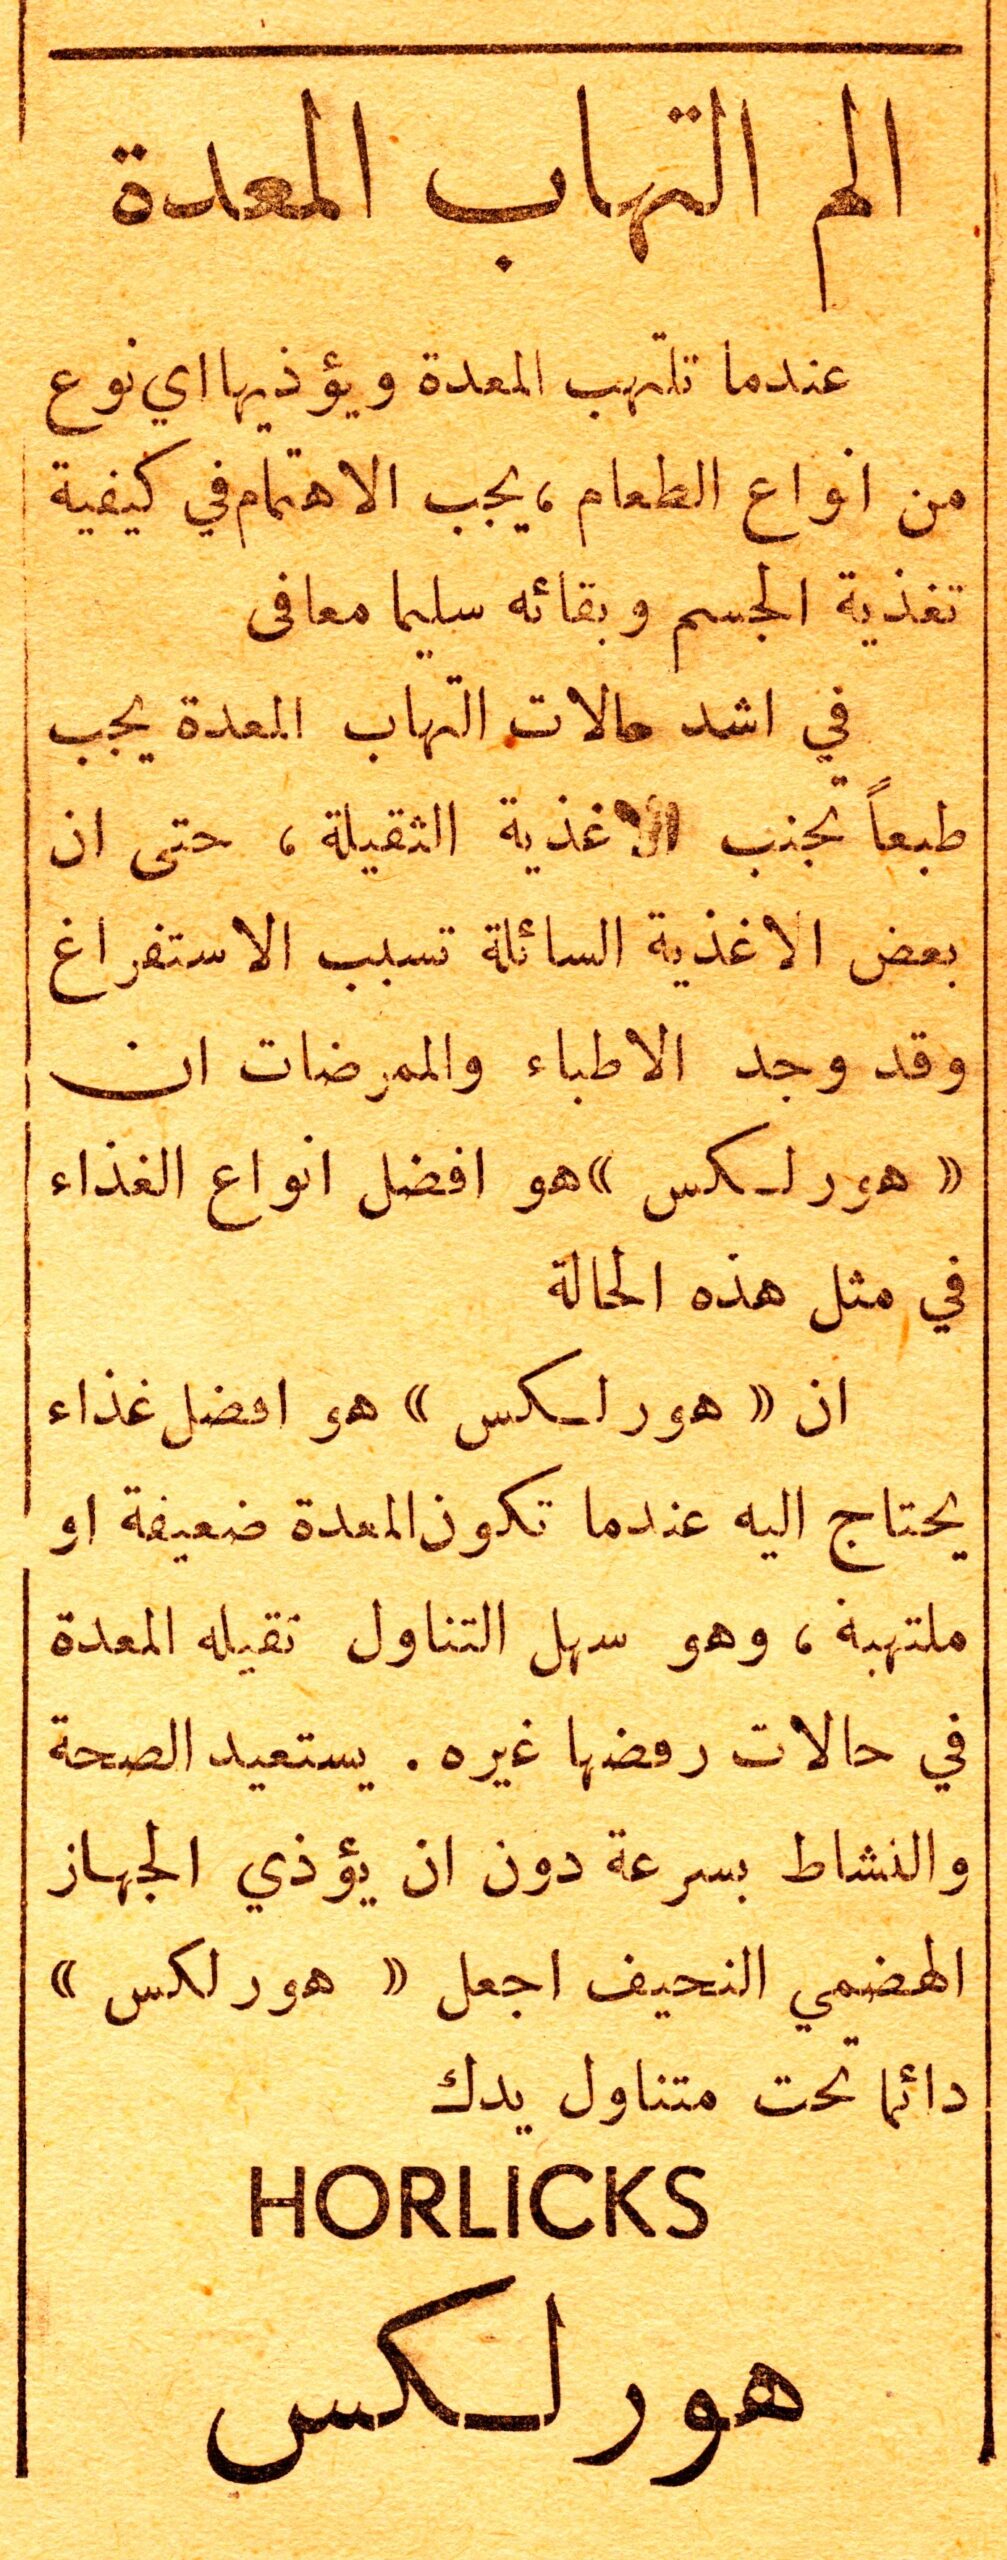 الم التهاب المعدة
عندما تلتهب المعدة ويؤذيها اي نوع
من انواع الطعام ، يجب الاهتمام في كيفية
تغذية الجسم وبقائه سليما معافى
في اشد حالات التهاب المعدة يجب
طبعاً تجنب الاغذية الثقيلة ، حتى ان
بعض الاغذية السائلة تسبب الاستفراغ
وقد وجد الاطباء والممرضات ان
« هورلـكس » هو افضل انواع الغذاء
في مثل هذه الحالة
ان « هورلـكس » هو افضل غذاء
يحتاج اليه عندما تكون المعدة ضعيفة او
ملتهبة ، وهو سهل التناول تقبله المعدة
في حالات رفضها غيره . يستعيد الصحة
والنشاط بسرعة دون ان يؤذي الجهاز
الهضمي النحيف اجعل « هورلكس »
دائما تحت متناول يدك
HORLICKS
هورلـكس